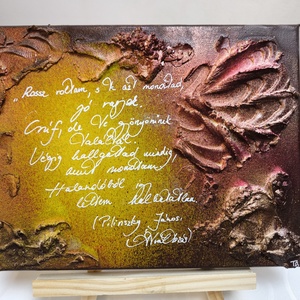 „Rossz voltam, s te azt mondtad,
jó vagyok.
Csúf, de te gyönyörűnek
találtál.
Végig hallgattad mindig,
amit mondtam.
Halandóból így
lettem halhatatlan.
(Pilinszky János:
TA